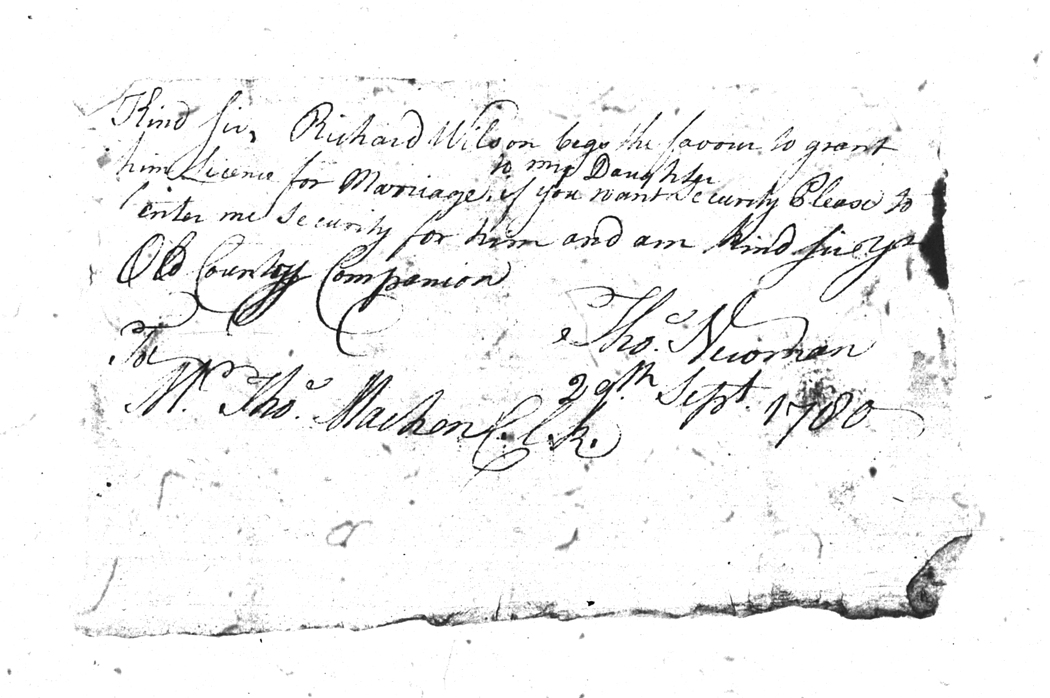 Kind Sir, Richard Wilson begs the favour to grant
him Licence for Marriage to my Daughter, if you want Security Please to
enter me Security for him and am kind Sir Yr
Old County Companion
Thos. Newman
29th. Sept. 1780
To
Mr. Thos. Machen C.l.k.